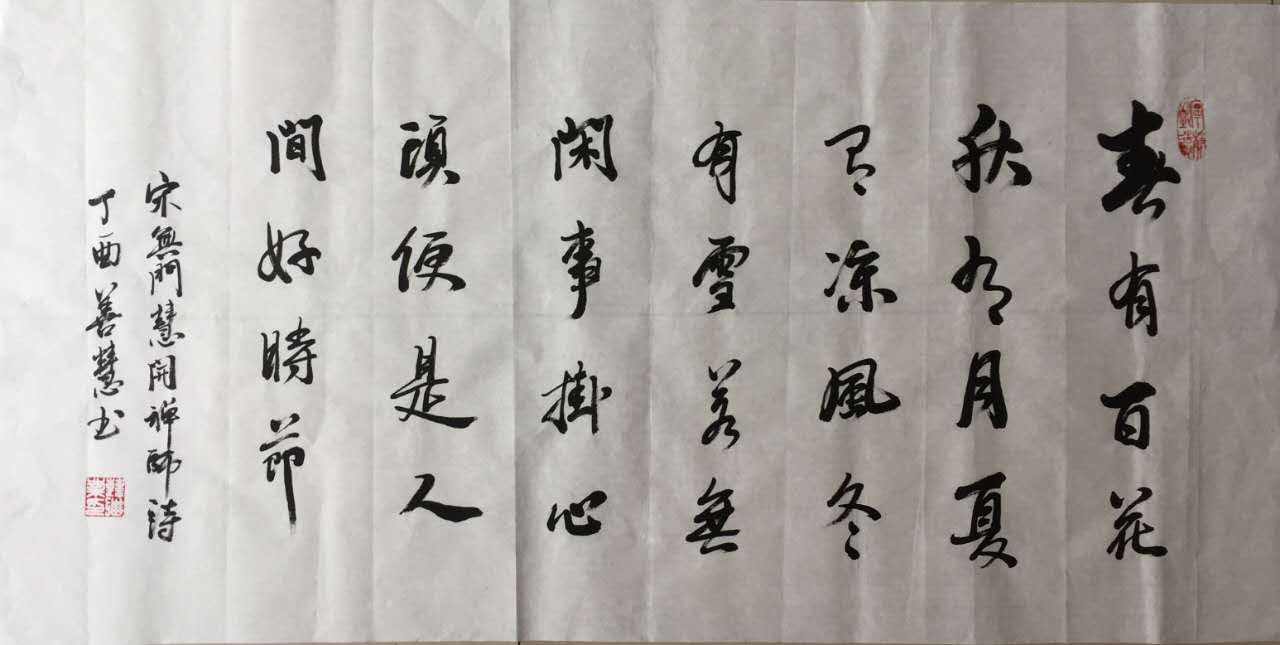 春有百花
秋有月夏
有凉風冬
有雪若無
閑事掛心
頭便是人
間好時節
宋無門慧開禅師詩
丁酉善慧书